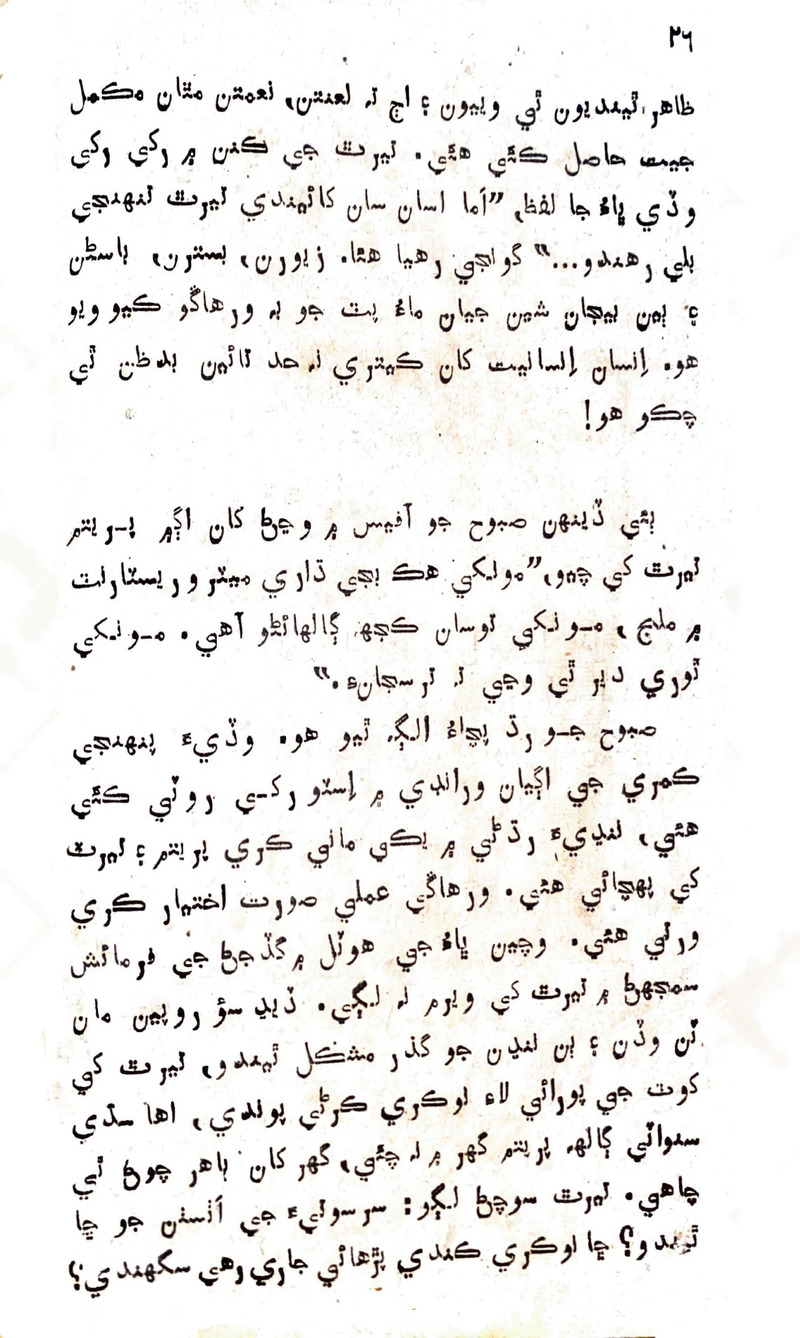 ٣٦
ظاهر ٿينديون ٿي ويون ۽ اڄ تہ لعنتن، نعمتن مٿان مڪمل
جيت حاصل ڪئي هئي. تيرٿ جي ڪنن ۾ رکي رکي
وڏي ڀاءُ جا لفظ، ”اَما اسان سان کائيندي تيرٿ تنهنجي
بلي رهندو...“ گواجي رهيا هئا. زيورن، بسترن، باسڻن
۽ ٻين بيجان شين جيان ماءُ پٽ جو بہ ورهاڱو ڪيو ويو
هو. اِنسان اِنسانيت کان ڪيتري نہ حد تائين بدظن ٿي
چڪو هو!
ٻئي ڏينهن صبوح جو آفيس ۾ وڃڻ کان اڳ ۾ پريتم
تيرٿ کي چيو، ”مونکي هڪ بجي ڌاري ميٽرو ريسٽارنٽ
۾ ملج، مونکي توسان ڪجهہ ڳالهائڻو آهي. مونکي
ٿوري دير ٿي وڃي تہ ترسجانءِ.“
صبوح جو رڌ پچاءُ الڳ ٿيو هو. وڏيءَ پنهنجي
ڪمري جي اڳيان ورانڊي ۾ اِسٽو رکي روٽي ڪئي
هئي، ننڍيءَ رڌڻي ۾ پڪي ماني ڪري پريتم ۽ تيرٿ
کي پهچائي هئي. ورهاڱي عملي صورت اختيار ڪري
ورتي هئي. وچين ڀاءُ جي هوٽل ۾ گڏجڻ جي فرمائش
سمجهڻ ۾ تيرٿ کي ويرم نہ لڳي. ڏيڍ سؤ روپين مان
ٽن وڏن ۽ ٻن ننڍن جو گذر مشڪل ٿيندو، تيرٿ کي
کوٽ جي پورائي لاءِ نوڪري ڪرڻي پوندي، اها سڌي
سنواٽي ڳالهہ پريتم گهر ۾ نہ چئي، گهر کان ٻاهر چوڻ ٿي
چاهي. تيرٿ سوچڻ لڳو: سرسوتيءَ جي اَئٽسٽن جو ڇا
ٿيندو؟ ڇا نوڪري ڪندي پڙهائي جاري رهي سگهندي؟